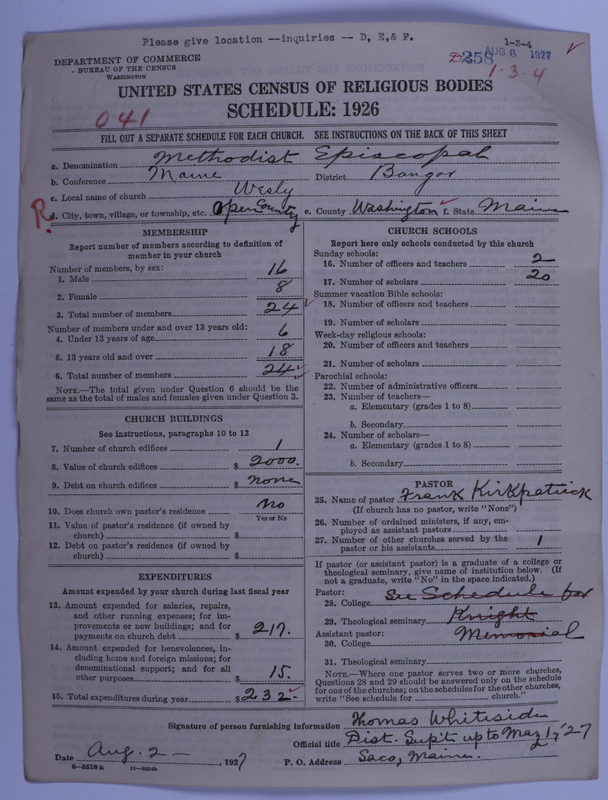 Please give location --inquiries -- D, E,& F.
1-3-4
258 AUG 6 1927
1-3-4
DEPARTMENT OF COMMERCE
BUREAU OF THE CENSUS
WASHINGTON
UNITED STATES CENSUS OF RELIGIOUS BODIES
SCHEDULE: 1926
041
FILL OUT A SEPARATE SCHEDULE FOR EACH CHURCH. SEE INSTRUCTIONS ON THE BACK OF THIS SHEET
a. Denomination Methodist Episcopal
b. Conference Maine District Bangor
c. Local name of church Wesly
R d. City, town, village, or township, etc. Open Country e. County Washington f. State Maine
MEMBERSHIP
Report number of members according to definition of member in your church
Number of members, by sex:
1. Male 16
2. Female 8
3. Total number of members 24
Number of members under and over 13 years old:
4. Under 13 years of age 6
5. 13 years old and over 18
6. Total number of members 24
NOTE.—The total given under Question 6 should be the same as the total of males and females given under Question 3.
CHURCH BUILDINGS
See instructions, paragraphs 10 to 12
7. Number of church edifices 1
8. Value of church edifices $ 2000.
9. Debt on church edifices $ none
10. Does church own pastor's residence no
Yes or No
11. Value of pastor's residence (if owned by church) $
12. Debt on pastor's residence (if owned by church) $
EXPENDITURES
Amount expended by your church during last fiscal year
13. Amount expended for salaries, repairs, and other running expenses; for improvements or new buildings; and for payments on church debt $ 217.
14. Amount expended for benevolences, including home and foreign missions; for denominational support; and for all other purposes $ 15.
15. Total expenditures during year $ 232
CHURCH SCHOOLS
Report here only schools conducted by this church
Sunday schools:
16. Number of officers and teachers 2
17. Number of scholars 20
Summer vacation Bible schools:
18. Number of officers and teachers
19. Number of scholars
Week-day religious schools:
20. Number of officers and teachers
21. Number of scholars
Parochial schools:
22. Number of administrative officers
23. Number of teachers—
a. Elementary (grades 1 to 8)
b. Secondary
24. Number of scholars—
a. Elementary (grades 1 to 8)
b. Secondary
PASTOR
25. Name of pastor Frank Kirkpatrick
(If church has no pastor, write "None")
26. Number of ordained ministers, if any, employed as assistant pastors
27. Number of other churches served by the pastor or his assistants 1
If pastor (or assistant pastor) is a graduate of a college or theological seminary, give name of institution below. (If not a graduate, write "No" in the space indicated.)
Pastor:
28. College See Schedule for
29. Theological seminary Knight
Assistant pastor: Memorial
30. College
31. Theological seminary
NOTE.—Where one pastor serves two or more churches, Questions 28 and 29 should be answered only on the schedule for one of the churches; on the schedules for the other churches, write "See schedule for church."
Signature of person furnishing information Thomas Whiteside
Official title Dist. Sup't up to May 1, '27
Date Aug. 2 - , 1927 P. O. Address Saco, Maine.
8-5518 a